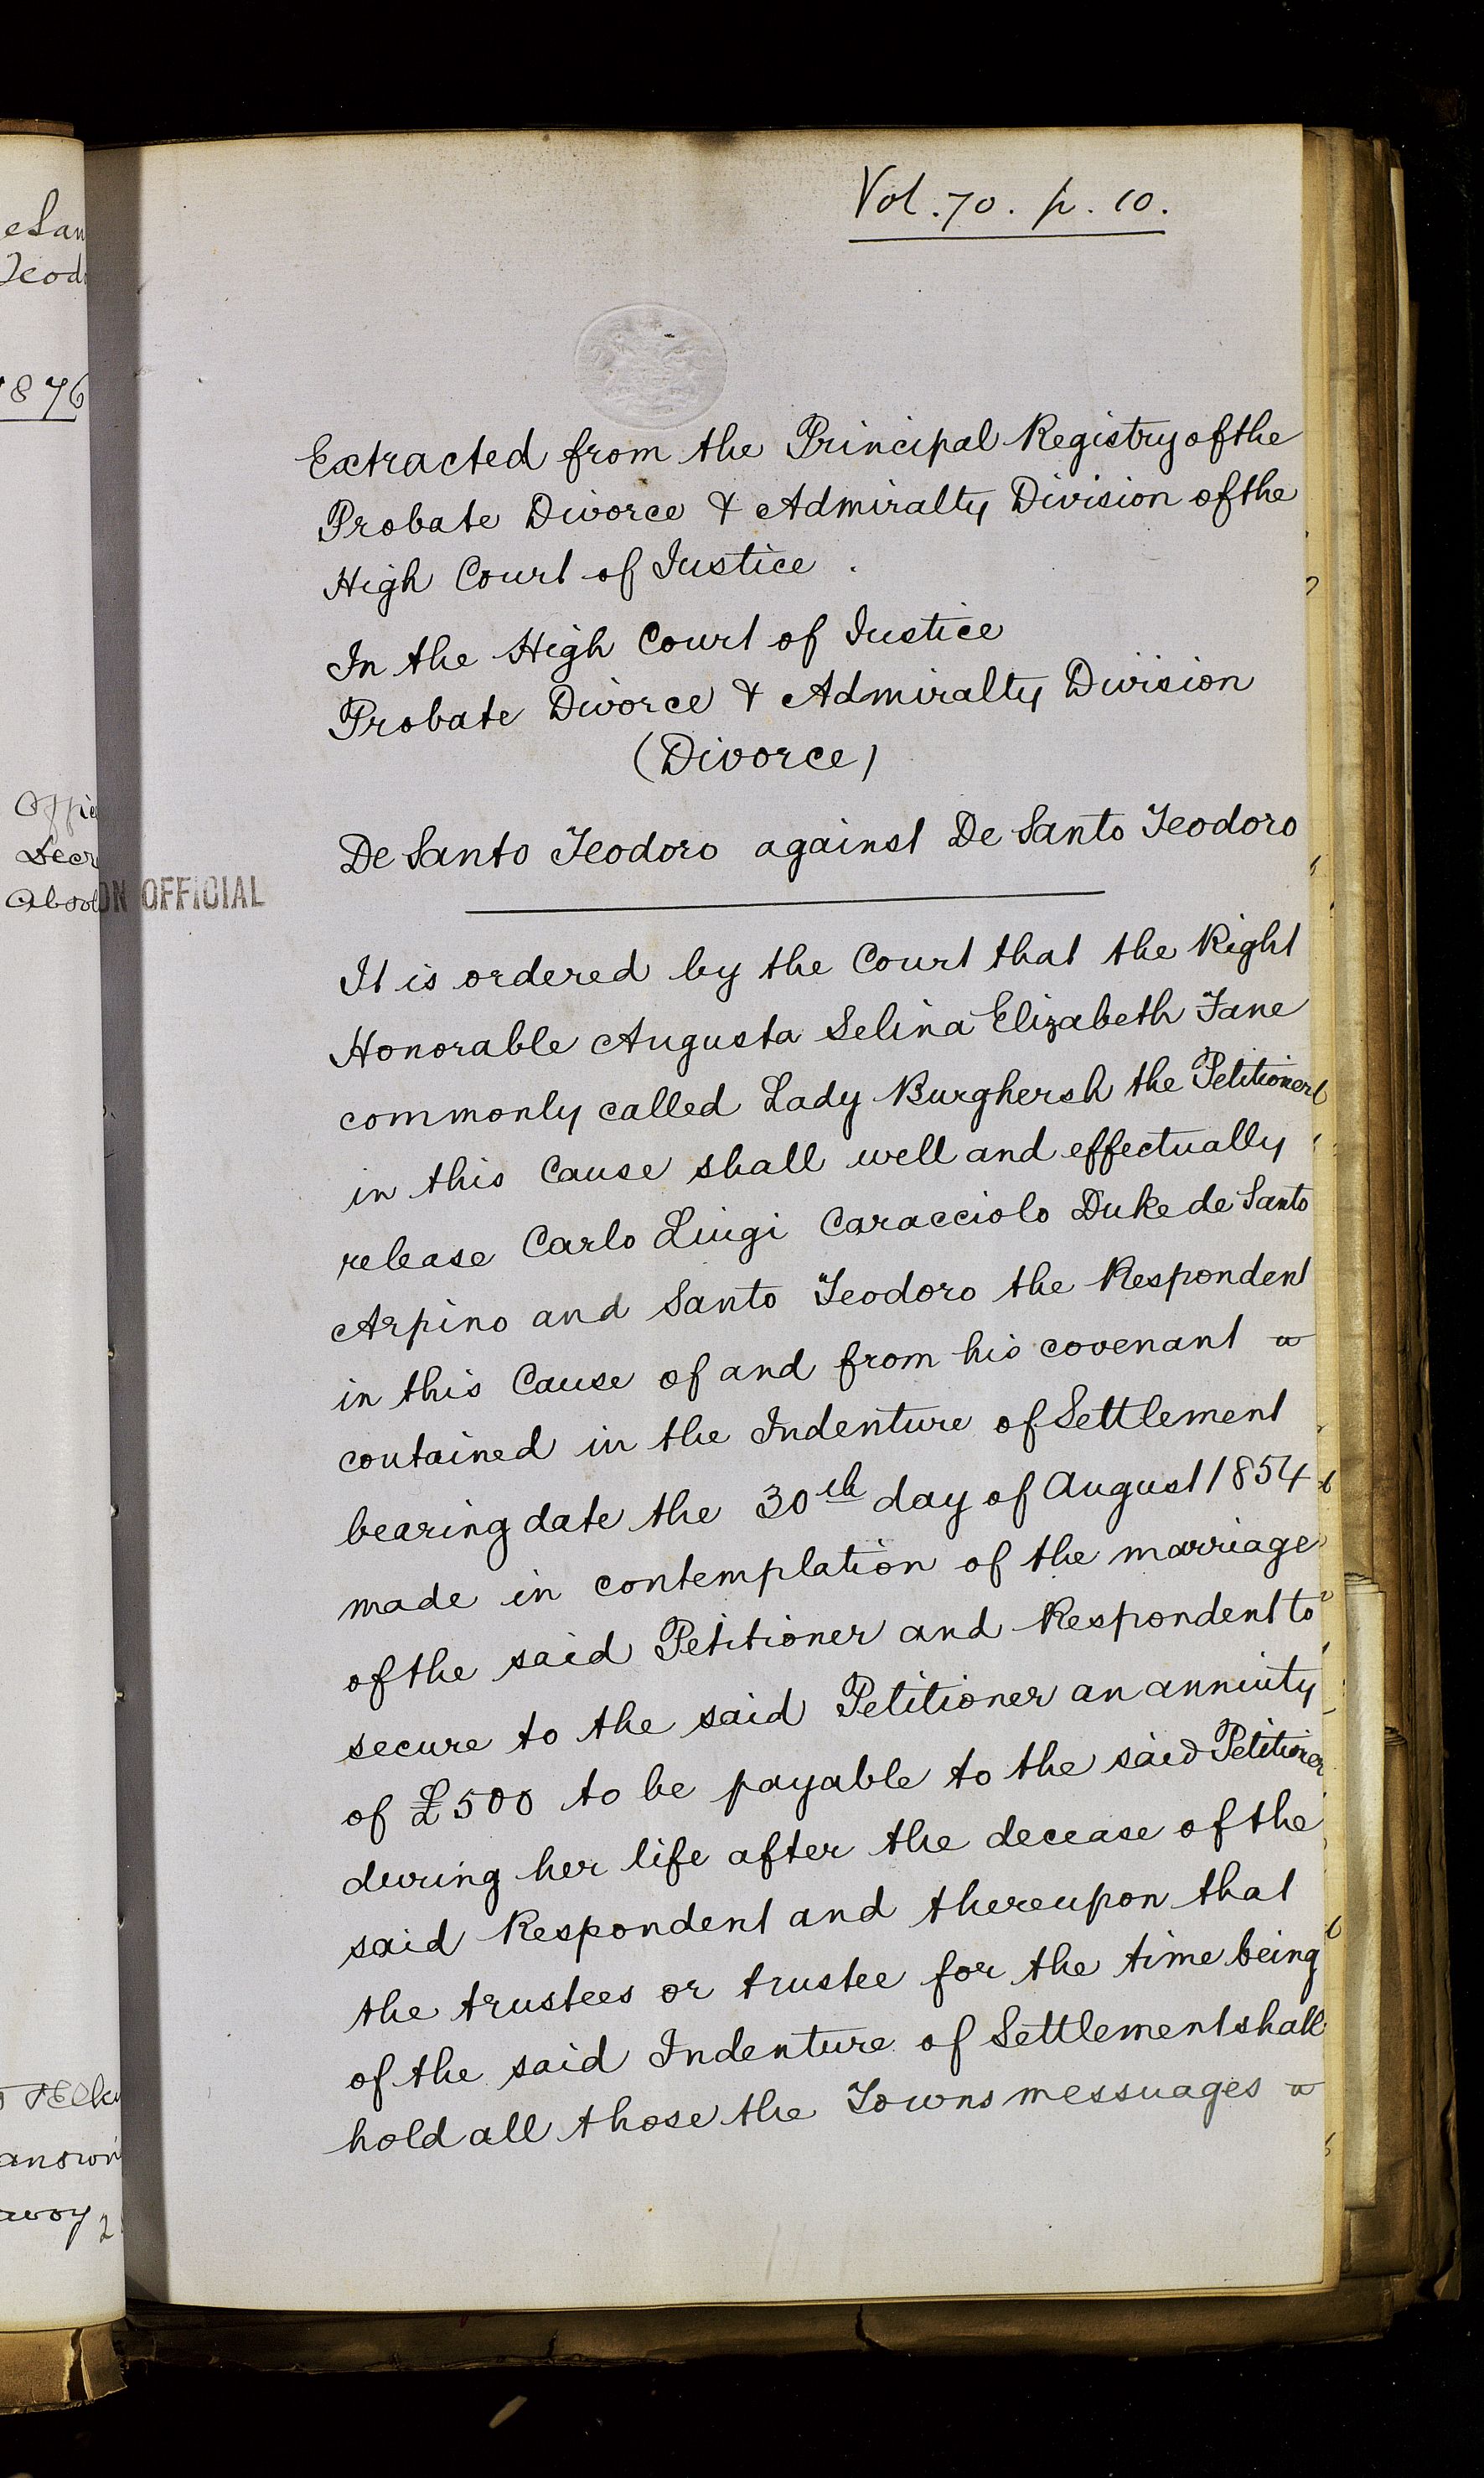 Vol. 70. p. 10.
Extracted from the Principal Registry of the
Probate Divorce & Admiralty Division of the
High Court of Justice.
In the High Court of Justice
Probate Divorce & Admiralty Division
(Divorce)
De Santo Teodoro against De Santo Teodoro
OFFICIAL
It is ordered by the Court that the Right
Honorable Augusta Selina Elizabeth Jane
commonly called Lady Burghersh the Petitioner
in this Cause shall well and effectually
release Carlo Luigi Caracciolo Duke de Santo
Arpino and Santo Teodoro the Respondent
in this Cause of and from his covenant
contained in the Indenture of Settlement
bearing date the 30th day of August 1854
made in contemplation of the marriage
of the said Petitioner and Respondent to
secure to the said Petitioner an annuity
of £500 to be payable to the said Petitioner
during her life after the decease of the
said Respondent and thereupon that
the trustees or trustee for the time being
of the said Indenture of Settlement shall
hold all those the Towns messuages
1876